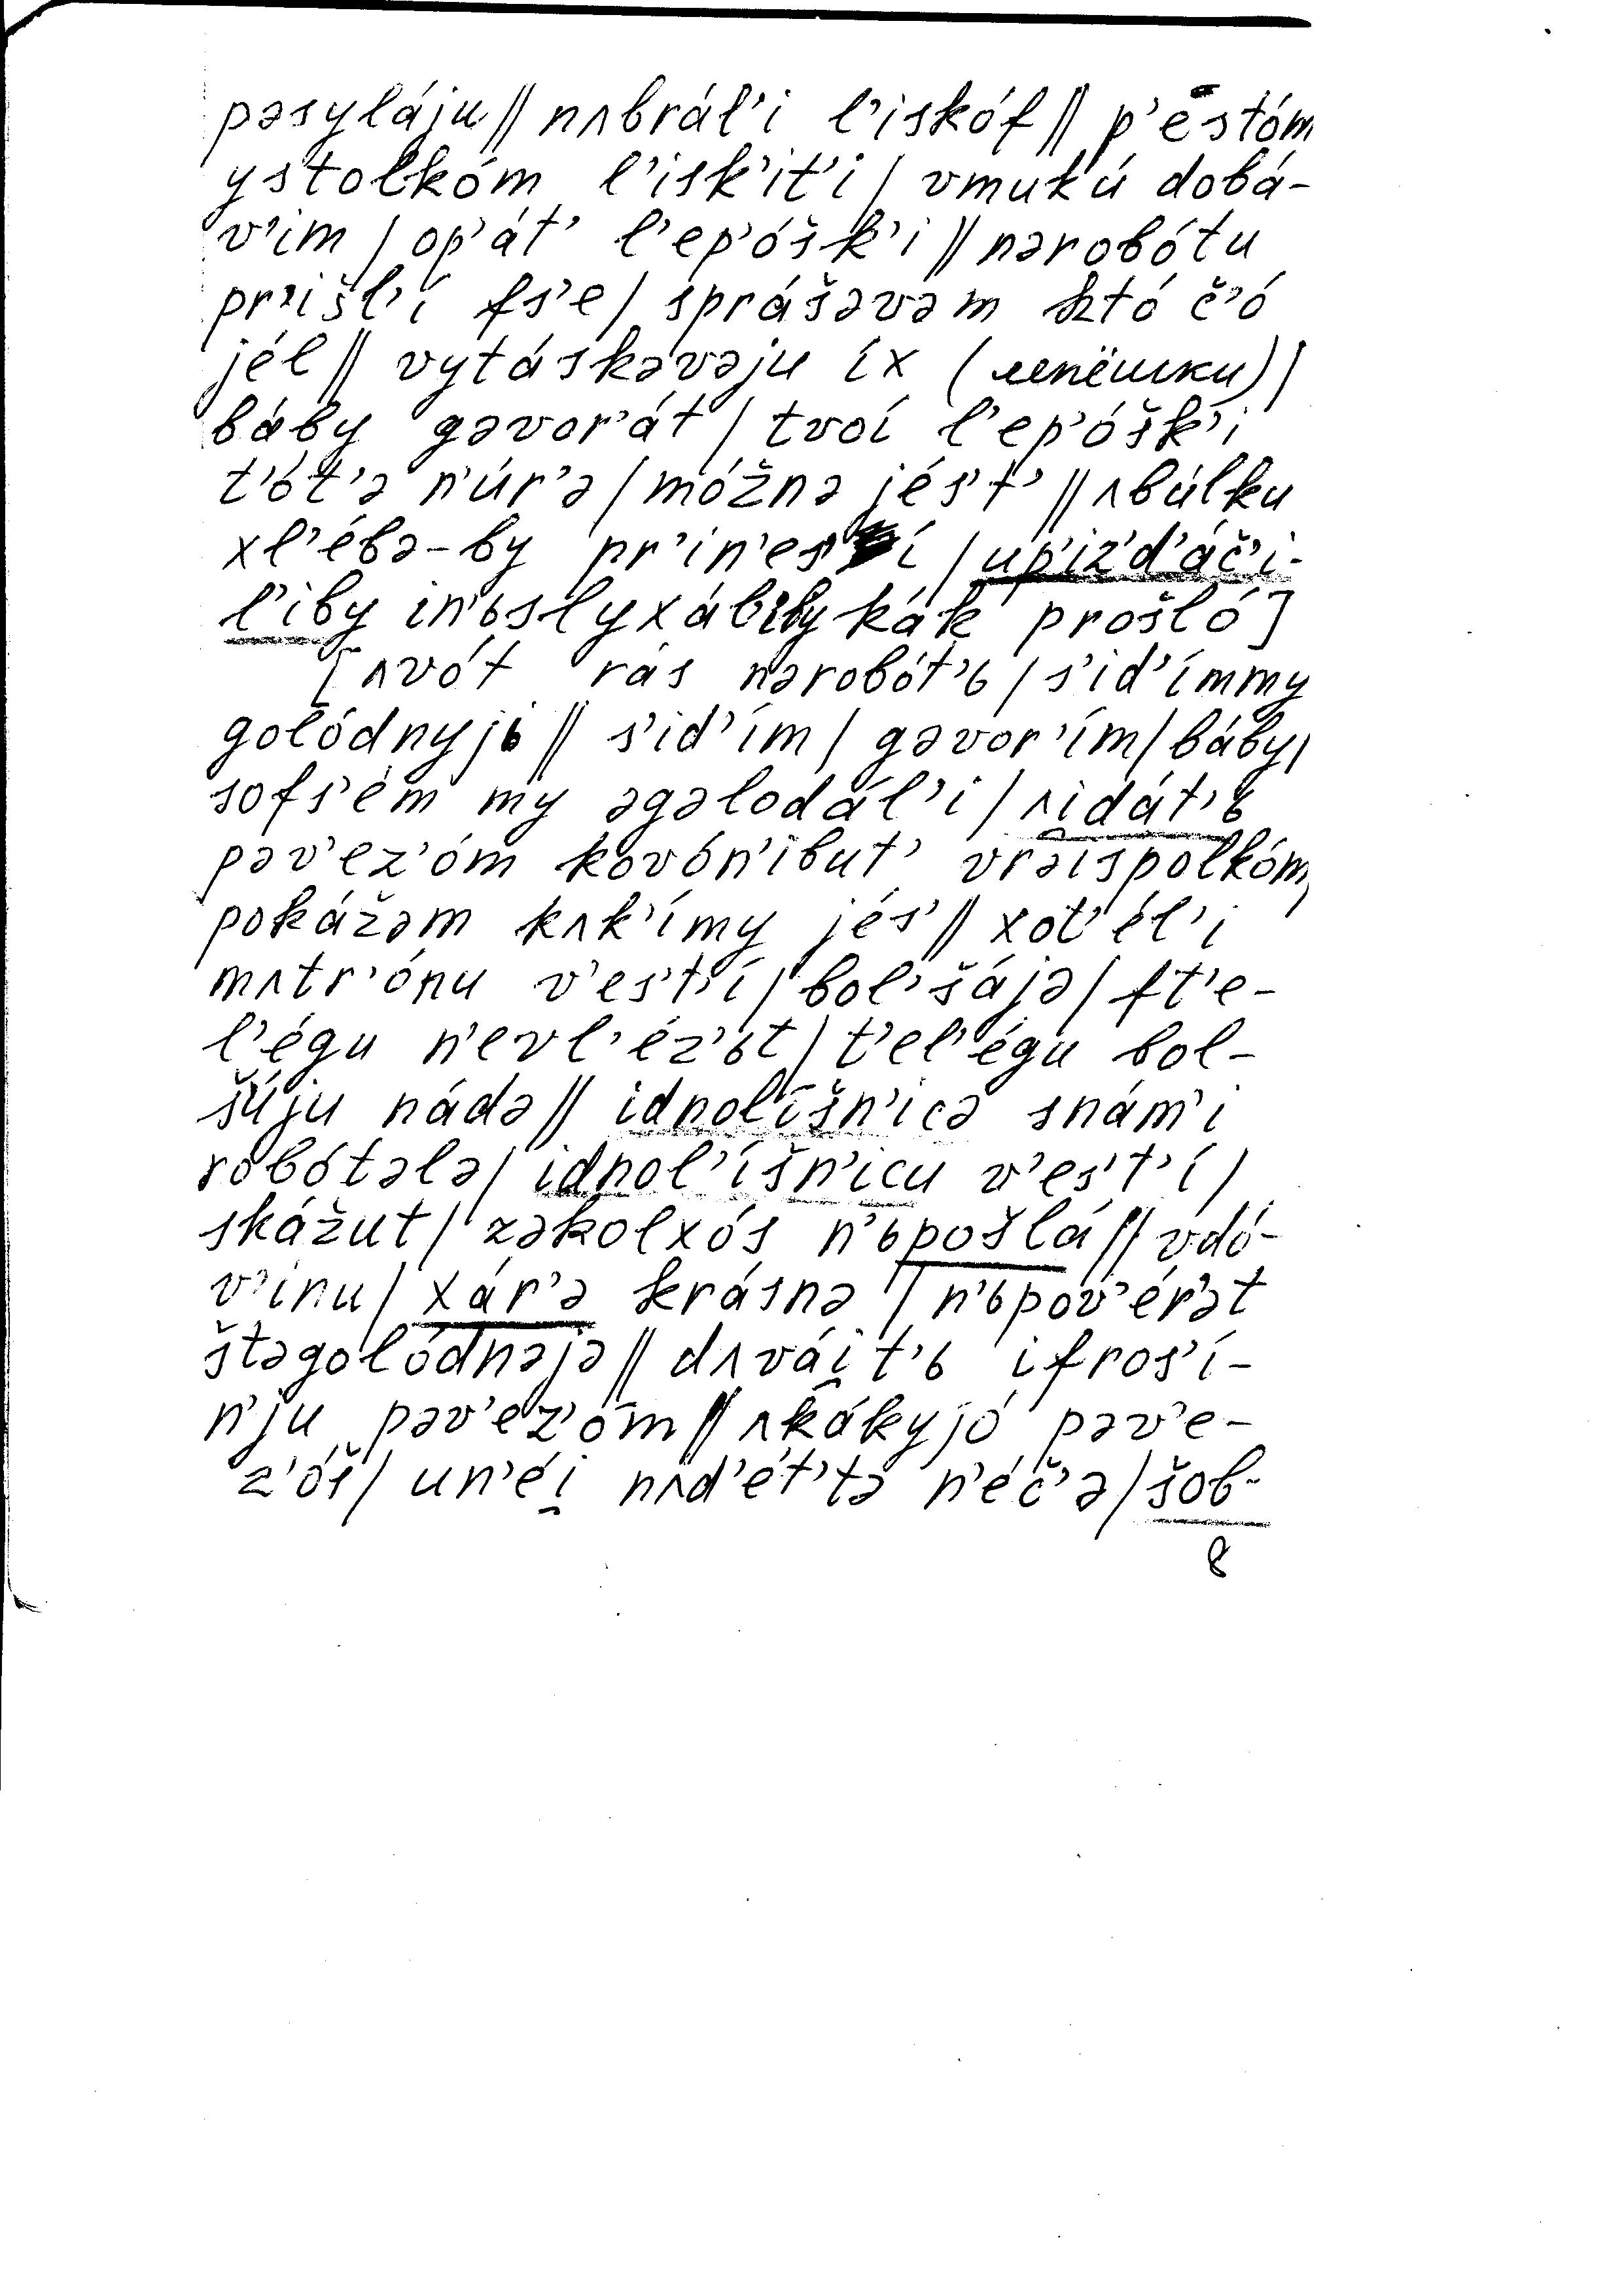 pəsyláju || nʌbrál'i l'iskóf || p'estóm
ystolkóm l'isk'it'i / vmukú dobá-
v'im / op'át' l'ep'óšk'i || nərobótu
pr'išl'í fs'e / sprášəvəm któ č'ó
jél || vytáskəvəju íx (лепёшки) /
báby gəvor'át / tvoí l'ep'óšk'i
t'ót'ə n'úr'ə / móžnə jés't' || ʌbúlku
xl'ébə-by pr'in'es'í / up'iz'd'áč'i-
l'iby in'ьslyxál'iby kák prošló]
[ʌvót rás nərobót'ь / s'id'ímmy
golódnyjь || s'id'ím / gəvor'ím / báby /
sofs'ém my əgəlodál'i / ʌi̯dát'ь
pəv'ez'óm kovón'ibut' vrəispolkóm,
pokážəm kʌk'ímy jés' || xot'él'i
mʌtr'ónu v'es't'í / bol'šájə / ft'e-
l'égu n'evl'éz'ьt / t'el'égu bol-
šúju nádə || idnol'íšn'icə snám'i
robótələ / idnol'íšn'icu v'es't'í /
skážut / zəkolxós n'ьpošlá || vdó-
v'inu / xár'ə krásnə / n'ьpov'ér'ət
štəgolódnəjə || dʌvái̯t'ь ifros'í-
n'ju pəv'ez'óm || ʌkákyjó pəv'e-
z'óš / un'éi̯ nʌd'ét'tə n'éč'ə / šob-
8